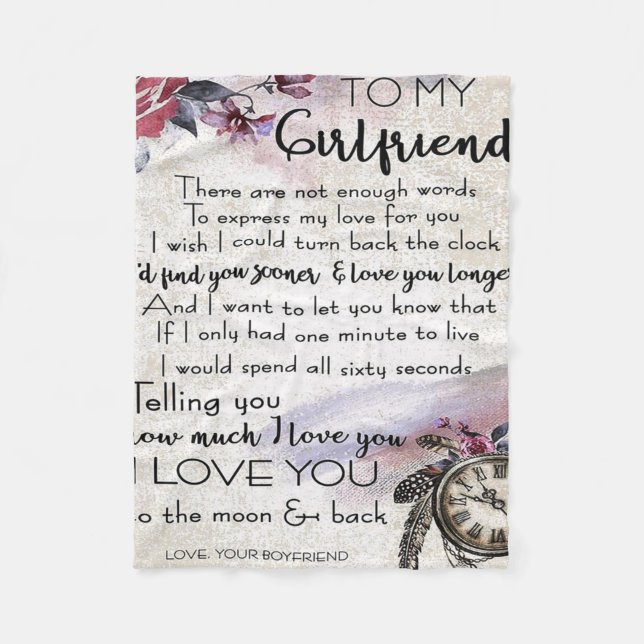 TO MY
Girlfriend
There are not enough words
To express my love for you
I wish I could turn back the clock
'd find you sooner & love you longer
And I want to let you know that
If I only had one minute to live
I would spend all sixty seconds
Telling you
how much I love you
I LOVE YOU
to the moon & back
LOVE, YOUR BOYFRIEND